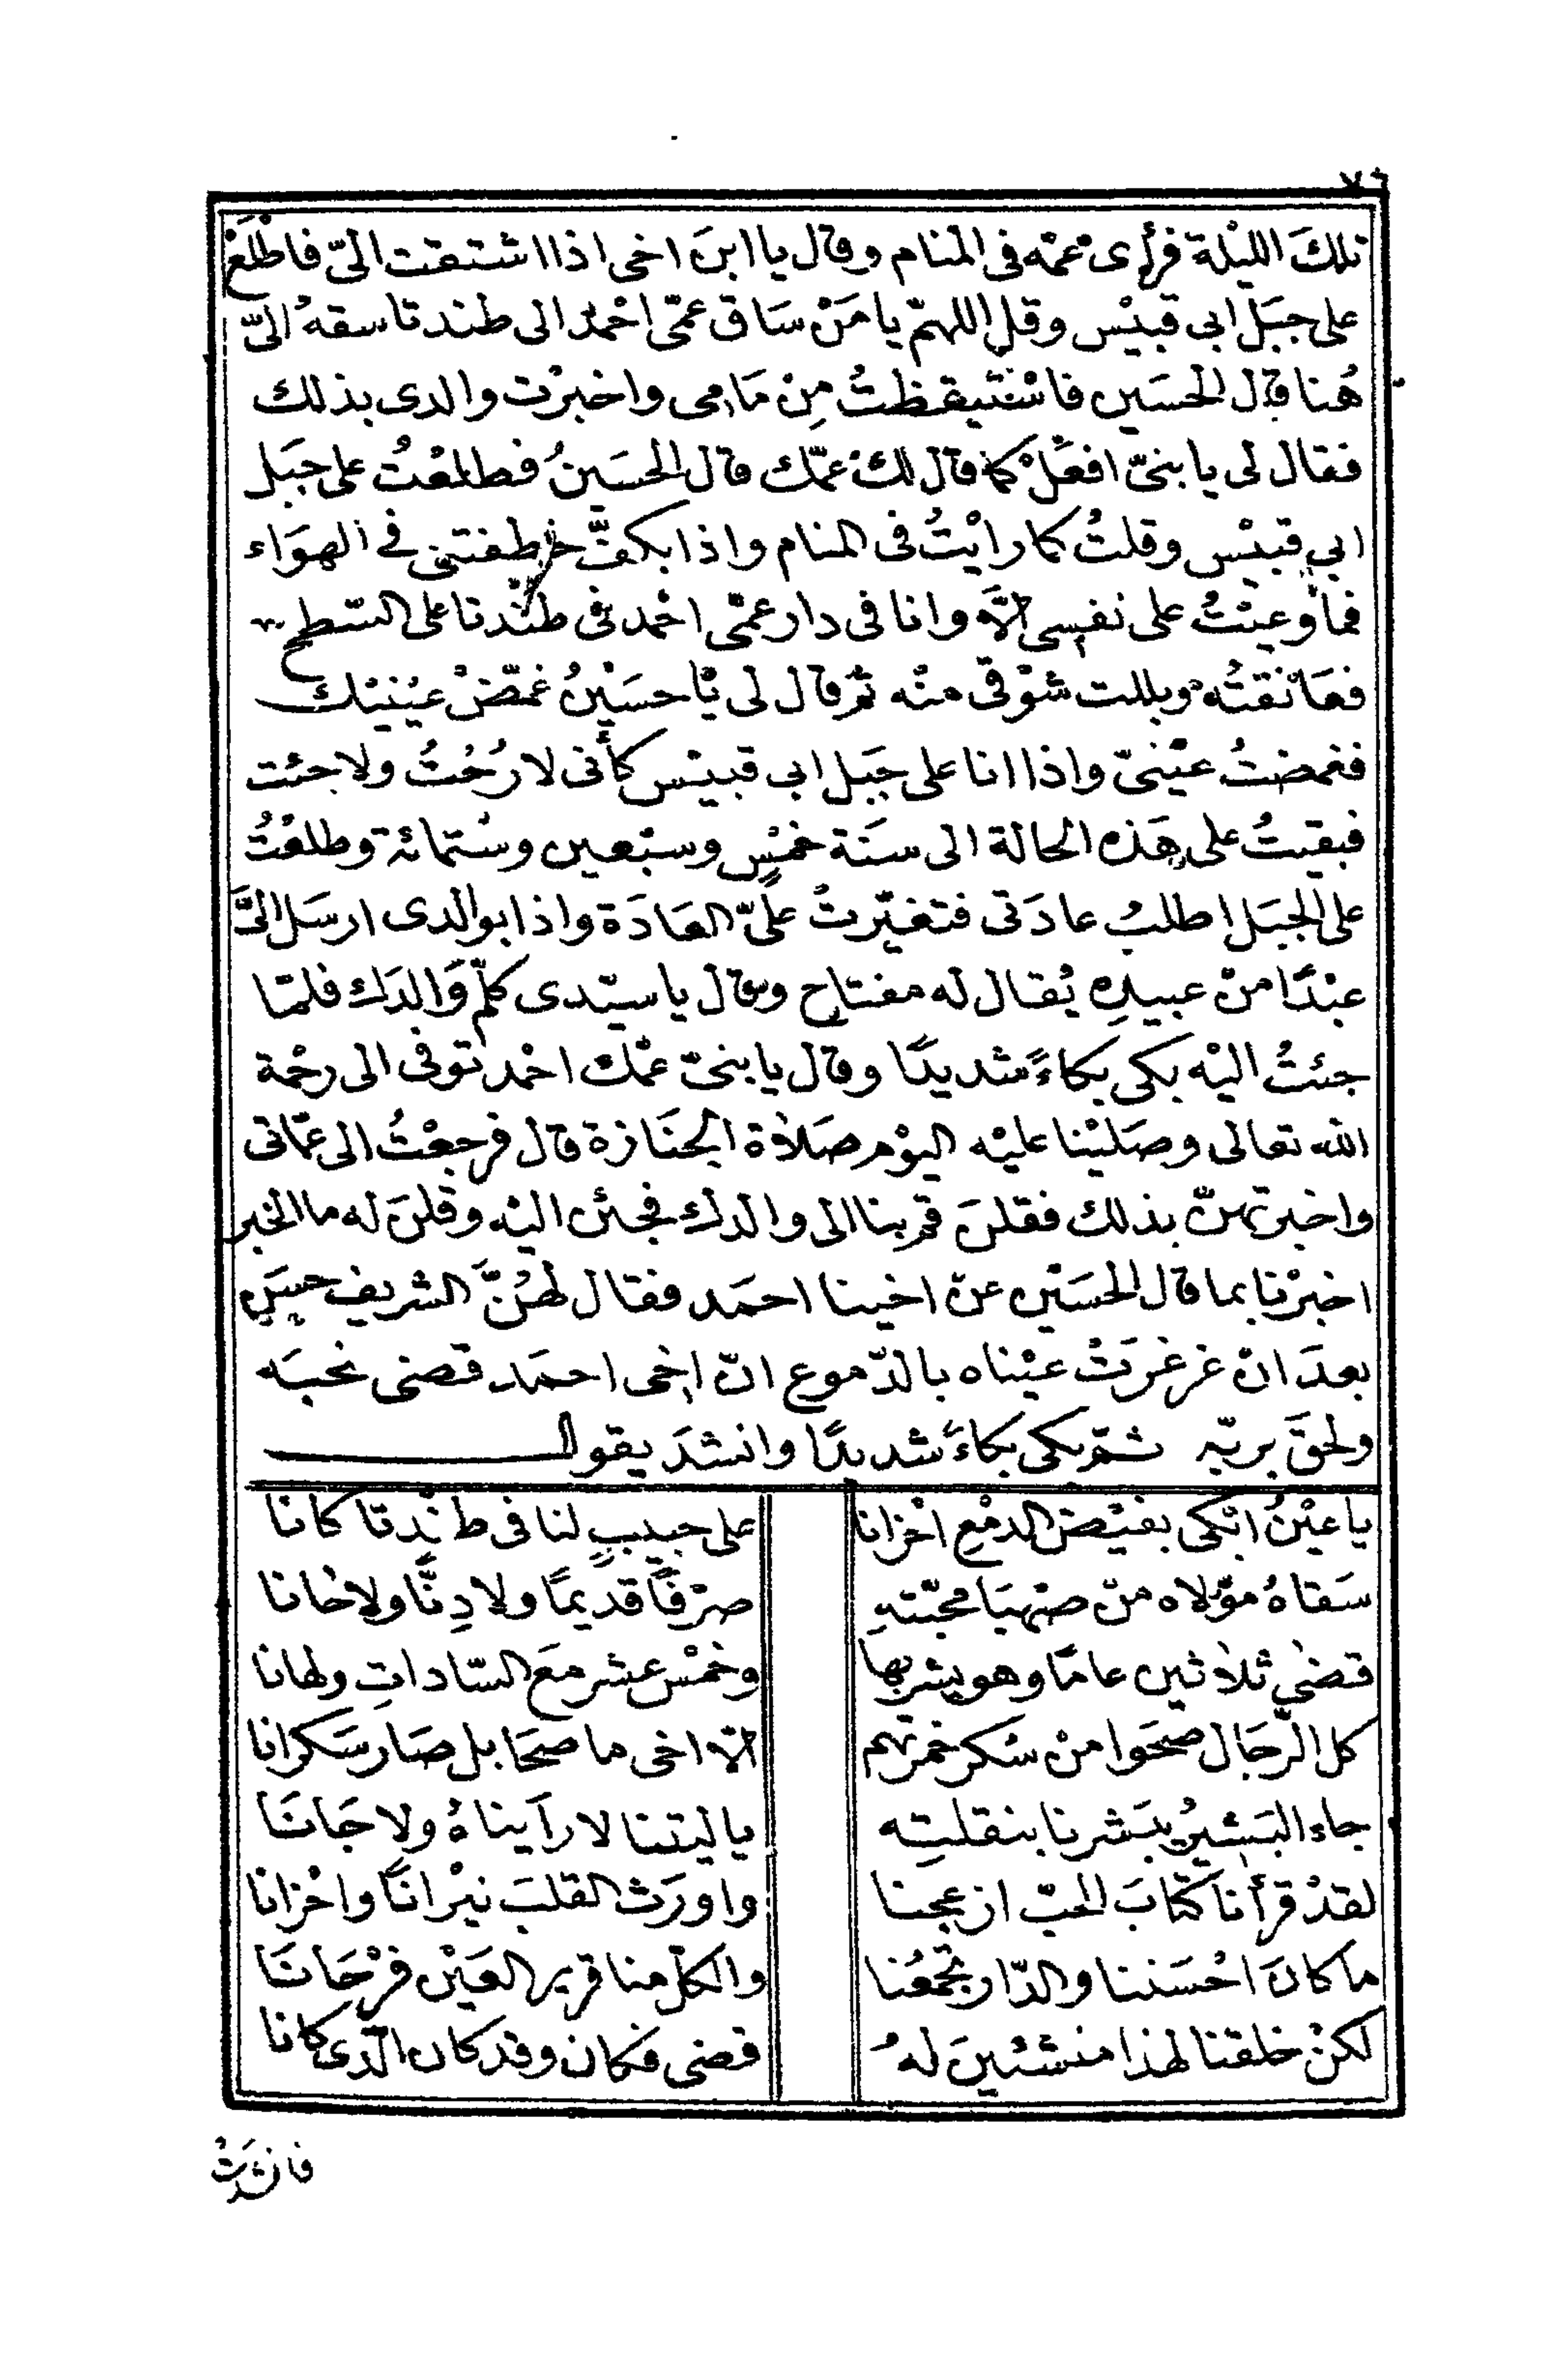 ٧٦
تلكَ الليْلة فرأى عمّه فى المنام وقال يا ابنَ اخى اذا اشتقت الىّ فاطْلَعْ
على جبَل ابى قبيْس وقل اللهمّ يا مَنْ سَاق عمّى احْمدَ الى طندتا سقهُ الىّ
هُنا قال الحسَين فاسْتيقظتُ مِنْ منامى واخبرْت والدى بذلك
فقال لى يا بنىّ افعَلْ كما قال لكَ عمّك قال الحسَينُ فطلعْتُ على جبَل
ابى قبيْس وقلتُ كما رايْتُ فى المنام واذا بكفّ خطفتنى فى الهوَاء
فما وعيْتُ على نفسى الاّ وانا فى دار عمّى احْمد فى طنْدتا على السّطح
فعَانقتُه وبللت شوْقى منْه ثم قال لى يا حسَيْنُ غمّضْ عيْنيْك
فغمضتُ عيْنىّ واذا انا على جَبل ابى قبيْس كأنى لا رُحْتُ ولا جئت
فبقيتُ على هَذه الحالة الى سنَة خمْسٍ وسبْعين وستمائة وطلعْتُ
على الجبَل اطلبُ عادَتى فتغيّرتْ علىَّ العَادَة واذا بوالدى ارسَل الىَّ
عبْدًا منْ عبيدِه يُقال له مفتاح وقال يا سيّدى كلّمْ وَالدَك فلمّا
جئتُ اليْه بكى بكاءً شديدًا وقال يا بنىّ عمّك احْمد توفى الى رحْمة
الله تعالى وصَليْنا عليْه اليوْم صَلاة الجنَازة قال فرجعْتُ الى عمّاتى
واخبرتهنّ بذلك فقلنَ قم بنا الى والدك فجئن اليْه وقلنَ له ما الخبر
اخبرْنا بما قال الحسَيْن عنْ اخينا احمَد فقال لهُنَّ الشريف حسَن
بعدَ انْ غرغرَتْ عيْناه بالدّموع انّ اخى احمَد قضى نحبَه
ولحقَ بربّه ثمّ بكى بكاءً شديدًا وانشدَ يقول
يا عيْنُ ابْكى بفيْض الدمْعِ احْزانا على حبيبٍ لنا فى طنْدتا كانا
سَقاهُ موْلاه منْ صهْبَا محبّتهِ صرْفًا قديمًا ولا دِنًّا ولا خانا
قضى ثلاثين عامًا وهو يشربها وخمْس عشر مَع السّاداتِ ولهانا
كل الرّجَال صحَوا منْ سُكر خمرتهم الاّ اخى ما صحَا بل صَار سَكرانا
جاء البَشيرُ يبَشرنا بنقلتِه يا ليتنا لا رأيناهُ ولا جَانَا
لقدْ قرأنا كتابَ الحبّ ازعجنا واورَث القلبَ نيْرانًا واحْزانا
ما كانَ احْسَننا والدّار تجمَعُنا والكلّ منا قرير العَيْن فرْحَانَا
لكنْ خلقنا لهذا منشئينَ لهُ قضى فكان وقد كان الّذى كانا
فانشدَتْ